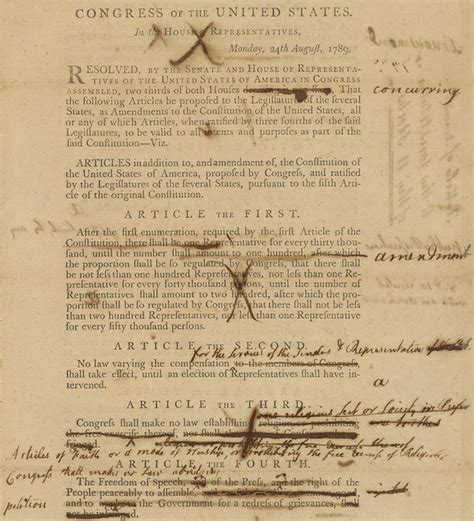 CONGRESS OF THE UNITED STATES.
In the House of Representatives,
Monday, 24th August, 1789,
RESOLVED, BY THE SENATE AND HOUSE OF REPRESENTA-
TIVES OF THE UNITED STATES OF AMERICA IN CONGRESS
ASSEMBLED, two thirds of both Houses deeming it necessary, That
concurring
the following Articles be proposed to the Legislatures of the several
States, as Amendments to the Constitution of the United States, all
or any of which Articles, when ratified by three fourths of the said
Legislatures, to be valid to all intents and purposes as part of the
said Constitution—Viz.
ARTICLES in addition to, and amendment of, the Constitution of
the United States of America, proposed by Congress, and ratified
by the Legislatures of the several States, pursuant to the fifth Arti-
cle of the original Constitution.
ARTICLE THE FIRST.
After the first enumeration, required by the first Article of the
Constitution, there shall be one Representative for every thirty thou-
sand, until the number shall amount to one hundred, after which
amendment
the proportion shall be so regulated by Congress, that there shall
be not less than one hundred Representatives, nor less than one Re-
presentative for every forty thousand persons, until the number of
Representatives shall amount to two hundred, after which the pro-
portion shall be so regulated by Congress, that there shall not be less
than two hundred Representatives, nor less than one Representative
for every fifty thousand persons.
ARTICLE THE SECOND.
for the services of the Senators & Representatives
No law varying the compensation to the members of Congress,
shall take effect, until an election of Representatives shall have in-
a
tervened.
ARTICLE THE THIRD.
one religious sect or Society in
Congress shall make no law establishing religion or prohibiting
the free exercise thereof, nor shall the
infringed.
Articles of Faith or a mode of Worship, or prohibiting the free exercise of Religion,
ARTICLE THE FOURTH.
Congress shall make no law abridging
The Freedom of Speech, and of the Press, and the right of the
People peaceably to assemble,
petition
and to the Government for a redress of grievances, shall
not be infringed.